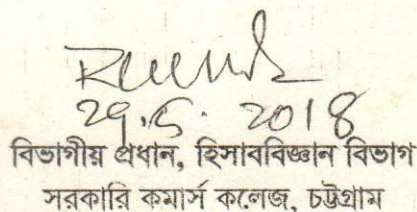 29.5.2018
বিভাগীয় প্রধান, হিসাববিজ্ঞান বিভাগ
সরকারি কমার্স কলেজ, চট্টগ্রাম